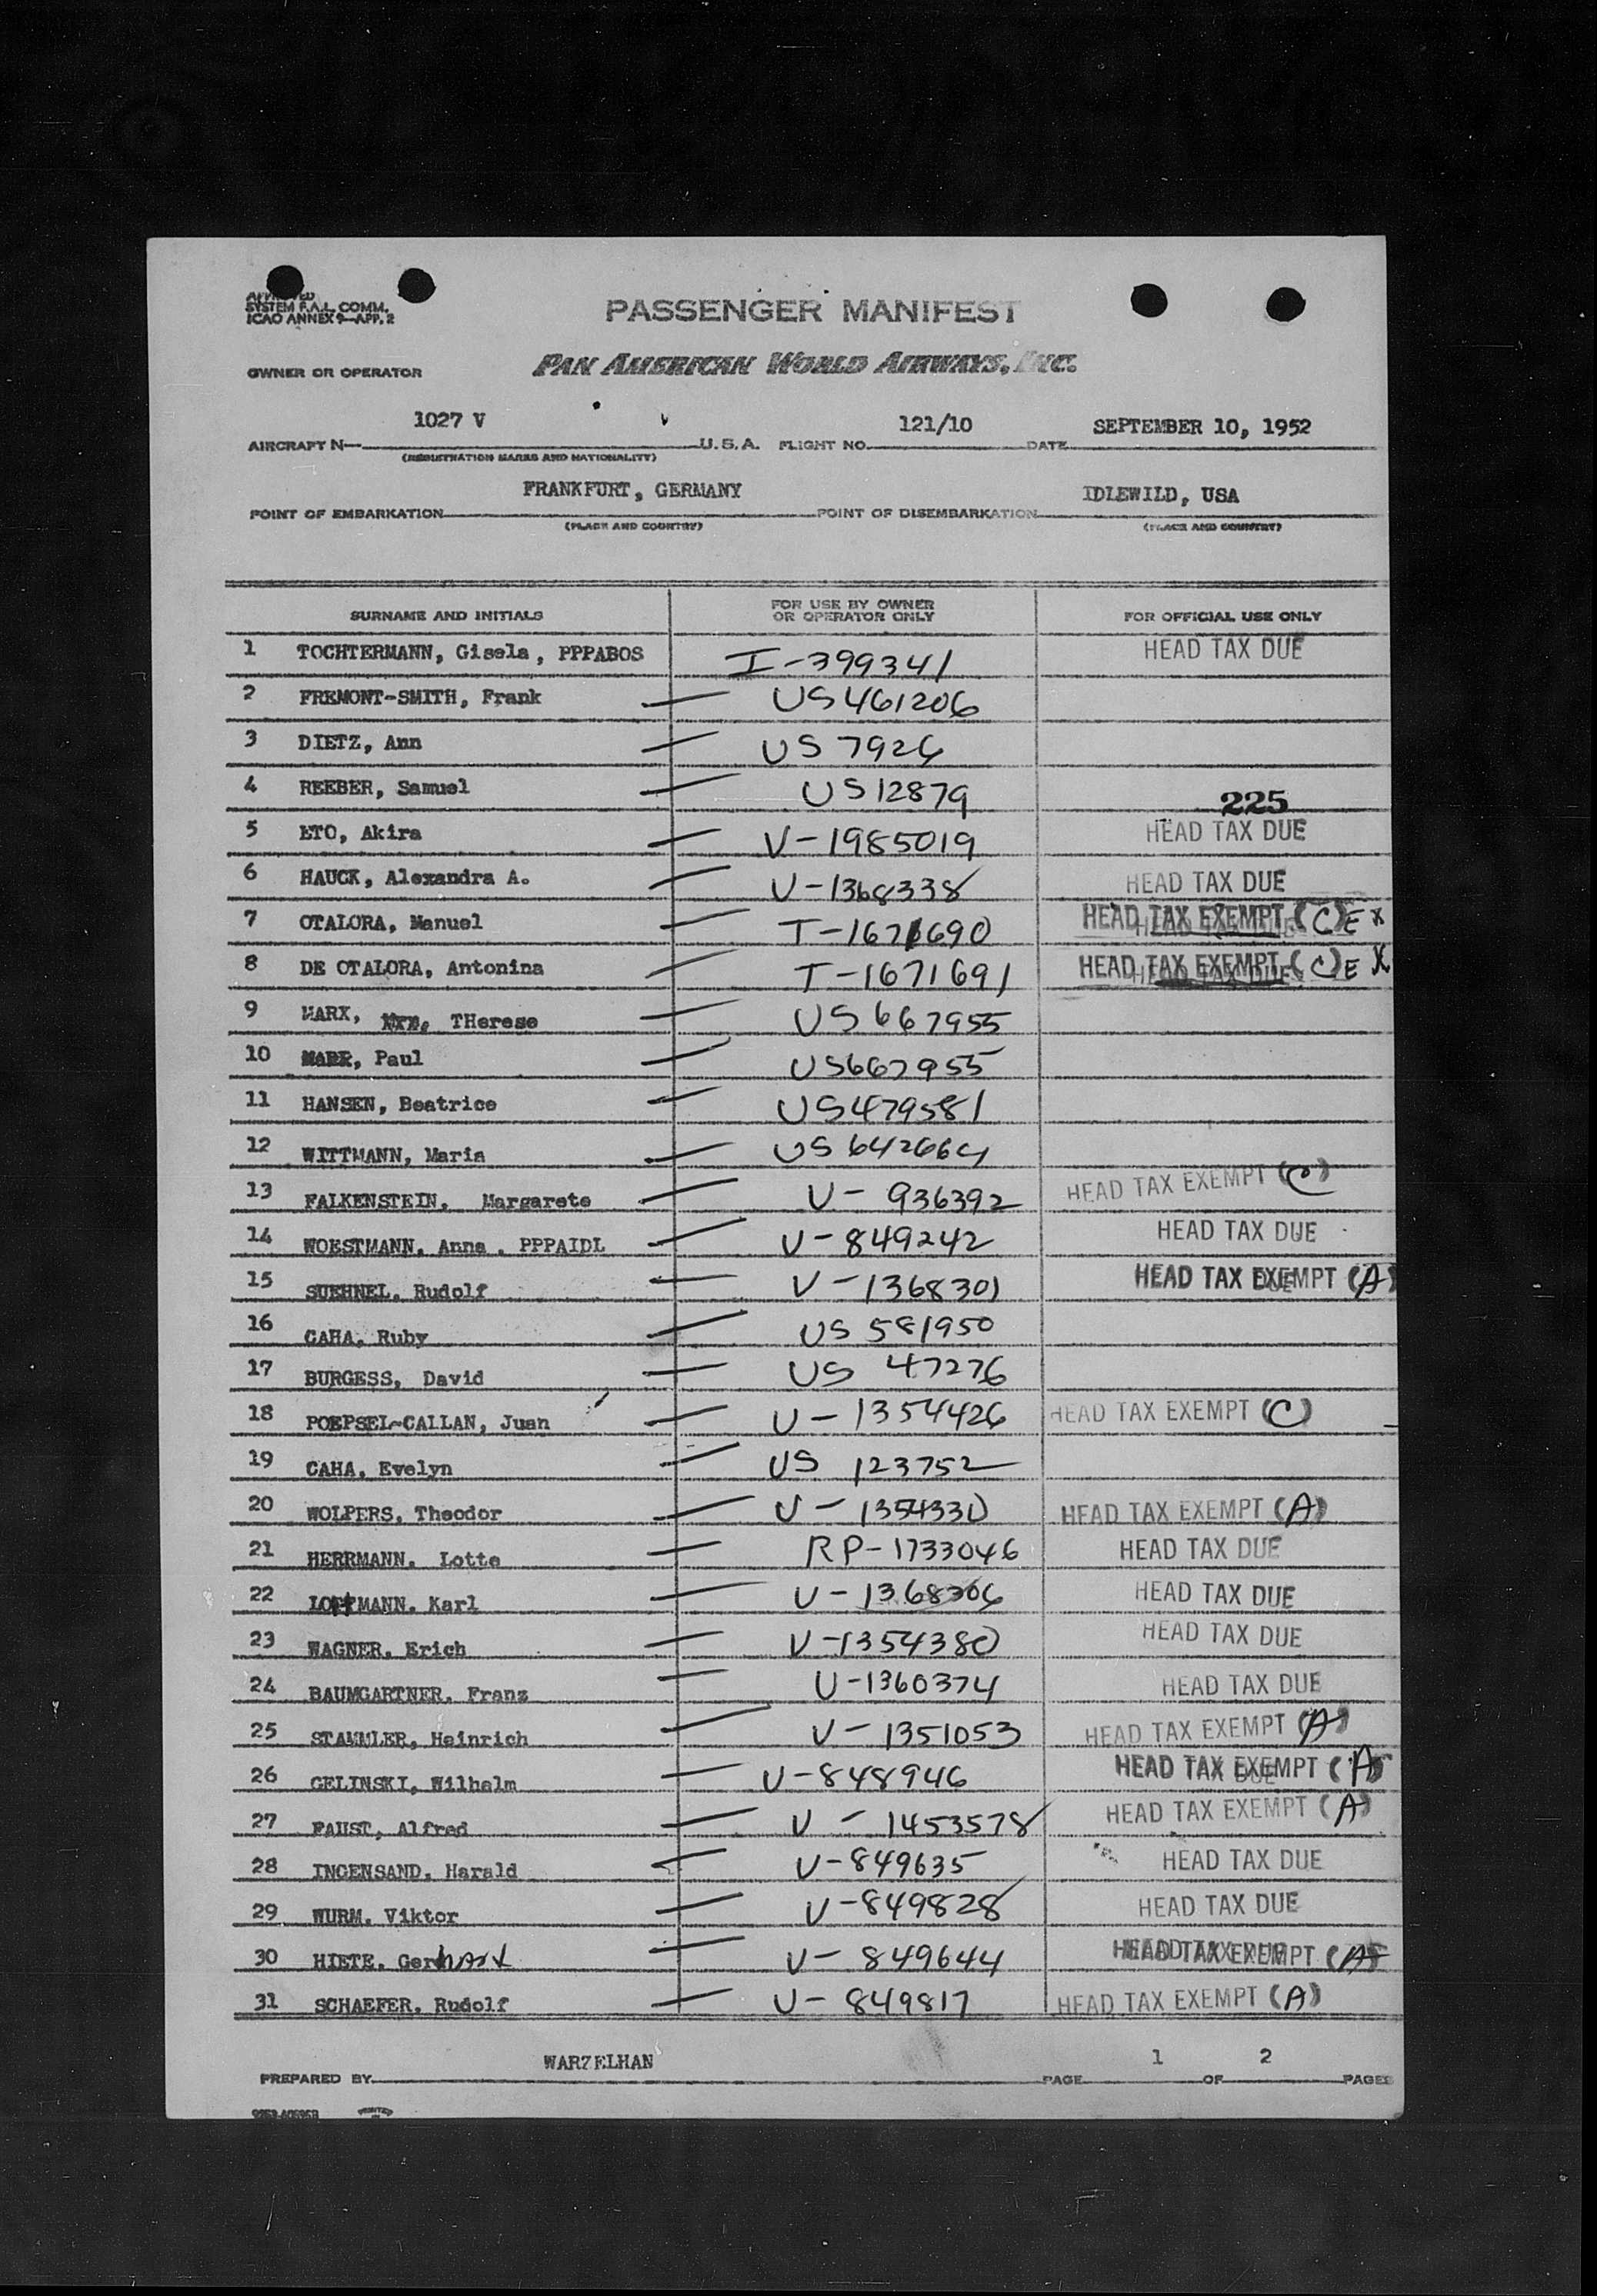 APPROVED
SYSTEM F.A.L. COMM.
ICAO ANNEX 9—APP. 2
PASSENGER MANIFEST
OWNER OR OPERATOR PAN AMERICAN WORLD AIRWAYS, INC.
AIRCRAFT N— 1027 V U.S.A. FLIGHT NO. 121/10 DATE SEPTEMBER 10, 1952
(REGISTRATION MARKS AND NATIONALITY)
POINT OF EMBARKATION FRANKFURT, GERMANY POINT OF DISEMBARKATION IDLEWILD, USA
(PLACE AND COUNTRY) (PLACE AND COUNTRY)
SURNAME AND INITIALS FOR USE BY OWNER OR OPERATOR ONLY FOR OFFICIAL USE ONLY
1 TOCHTERMANN, Gisela, PPPABOS I-399341 HEAD TAX DUE
2 FREMONT-SMITH, Frank — US 461206
3 DIETZ, Ann — US 7926
4 REEBER, Samuel — US 12879 225
5 ETO, Akira — V-1985019 HEAD TAX DUE
6 HAUCK, Alexandra A. — V-1368338 HEAD TAX DUE
7 OTALORA, Manuel — T-1671690 HEAD TAX EXEMPT (C) E X
8 DE OTALORA, Antonina — T-1671691 HEAD TAX EXEMPT (C) E X
9 MARX, THerese — US 667955
10 MARX, Paul — US667955
11 HANSEN, Beatrice — US479581
12 WITTMANN, Maria — US 642664
13 FALKENSTEIN, Margarete — V- 936392 HEAD TAX EXEMPT (C)
14 WOESTMANN, Anna, PPPAIDL — V-849242 HEAD TAX DUE
15 SUEHNEL, Rudolf — V-1368301 HEAD TAX EXEMPT (A)
16 CAHA, Ruby — US 581950
17 BURGESS, David — US 47276
18 POEPSEL-CALLAN, Juan — V-1354426 HEAD TAX EXEMPT (C)
19 CAHA, Evelyn — US 123752
20 WOLPERS, Theodor — V-1354330 HEAD TAX EXEMPT (A)
21 HERRMANN, Lotte — RP-1733046 HEAD TAX DUE
22 LOTTMANN, Karl — V-1368306 HEAD TAX DUE
23 WAGNER, Erich — V-1354380 HEAD TAX DUE
24 BAUMGARTNER, Franz — V-1360374 HEAD TAX DUE
25 STAMMLER, Heinrich — V-1351053 HEAD TAX EXEMPT (A)
26 GELINSKI, Wilhelm — V-848946 HEAD TAX EXEMPT (A)
27 FAUST, Alfred — V-1453578 HEAD TAX EXEMPT (A)
28 INGENSAND, Harald — V-849635 HEAD TAX DUE
29 WURM, Viktor — V-849828 HEAD TAX DUE
30 HIETE, Gerhart — V-849644 HEAD TAX EXEMPT (A)
31 SCHAEFER, Rudolf — V-849817 HEAD TAX EXEMPT (A)
PREPARED BY WARZELHAN PAGE 1 OF 2 PAGES